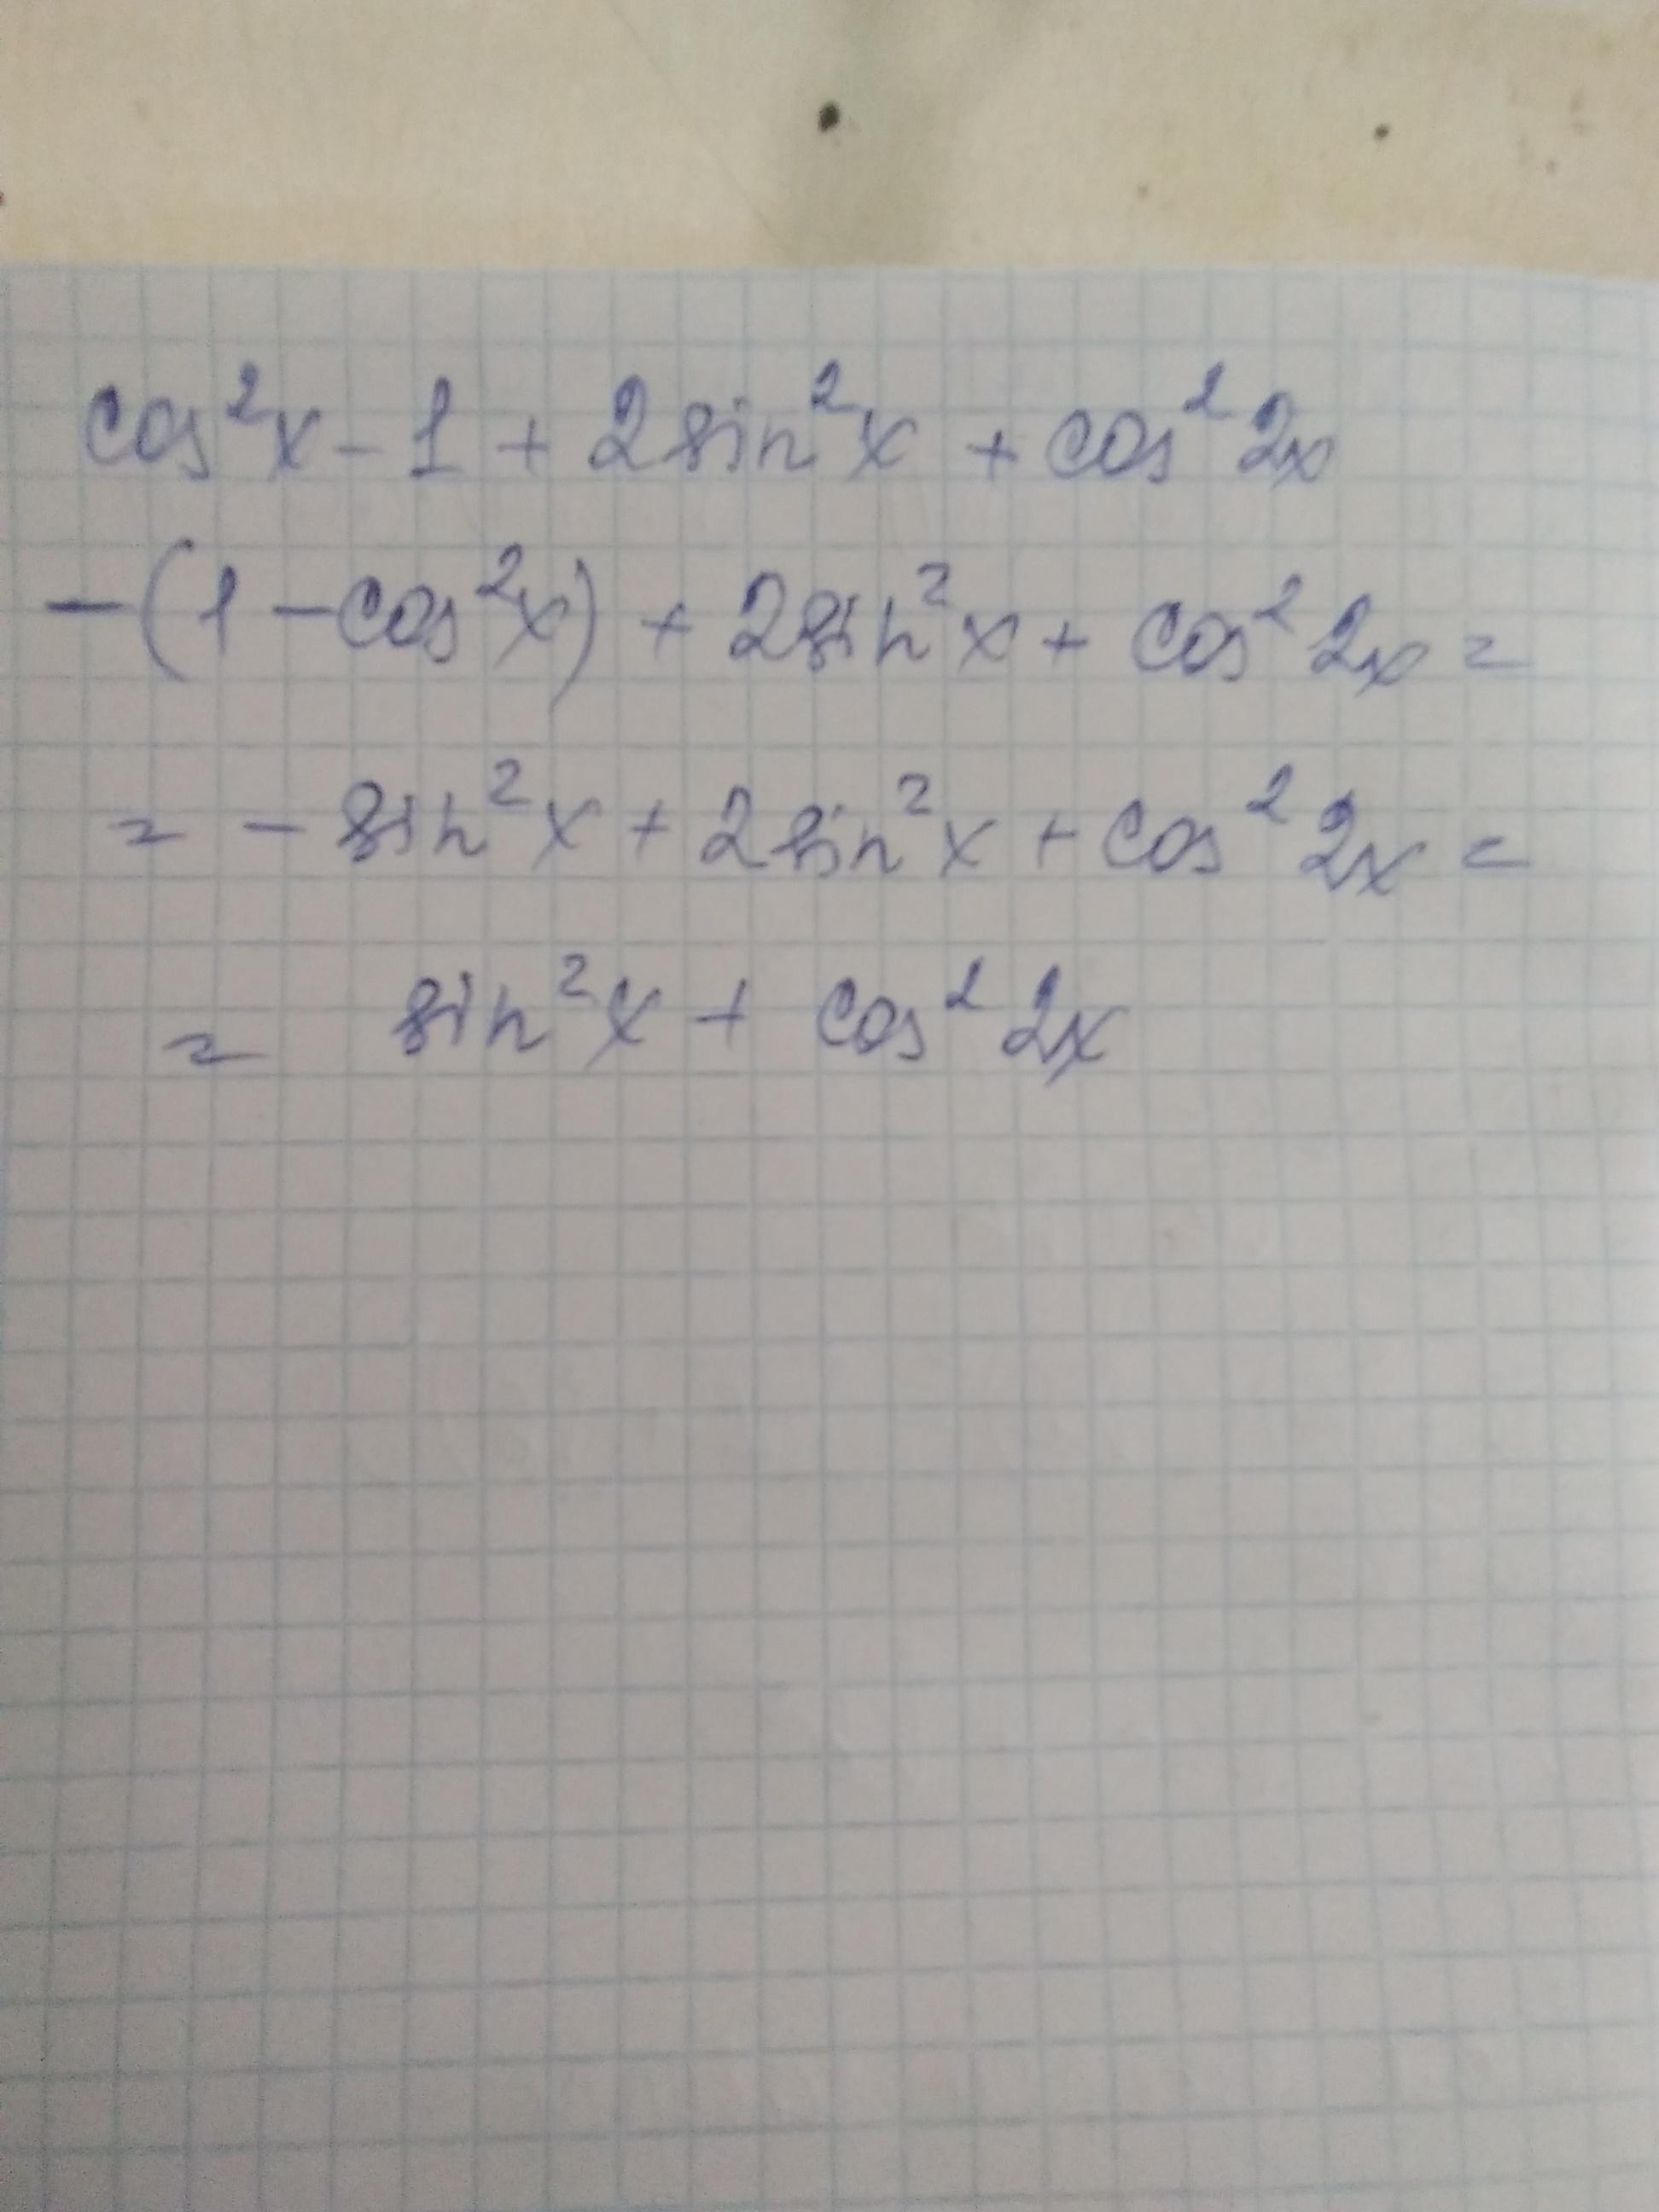 cos²x - 1 + 2sin²x + cos²2x
-(1 - cos²x) + 2sin²x + cos²2x =
= - sin²x + 2sin²x + cos²2x =
= sin²x + cos²2x